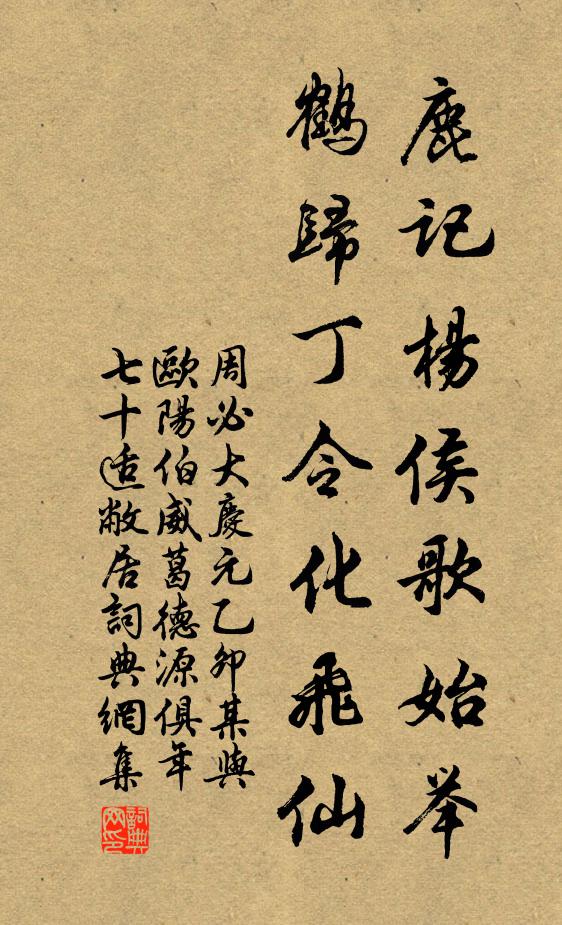 鹿記楊侯歌始举
鶴歸丁令化飛仙
周必大慶元乙卯某與
歐陽伯威葛德源俱年
七十适敝居詞典網集
詞典网印